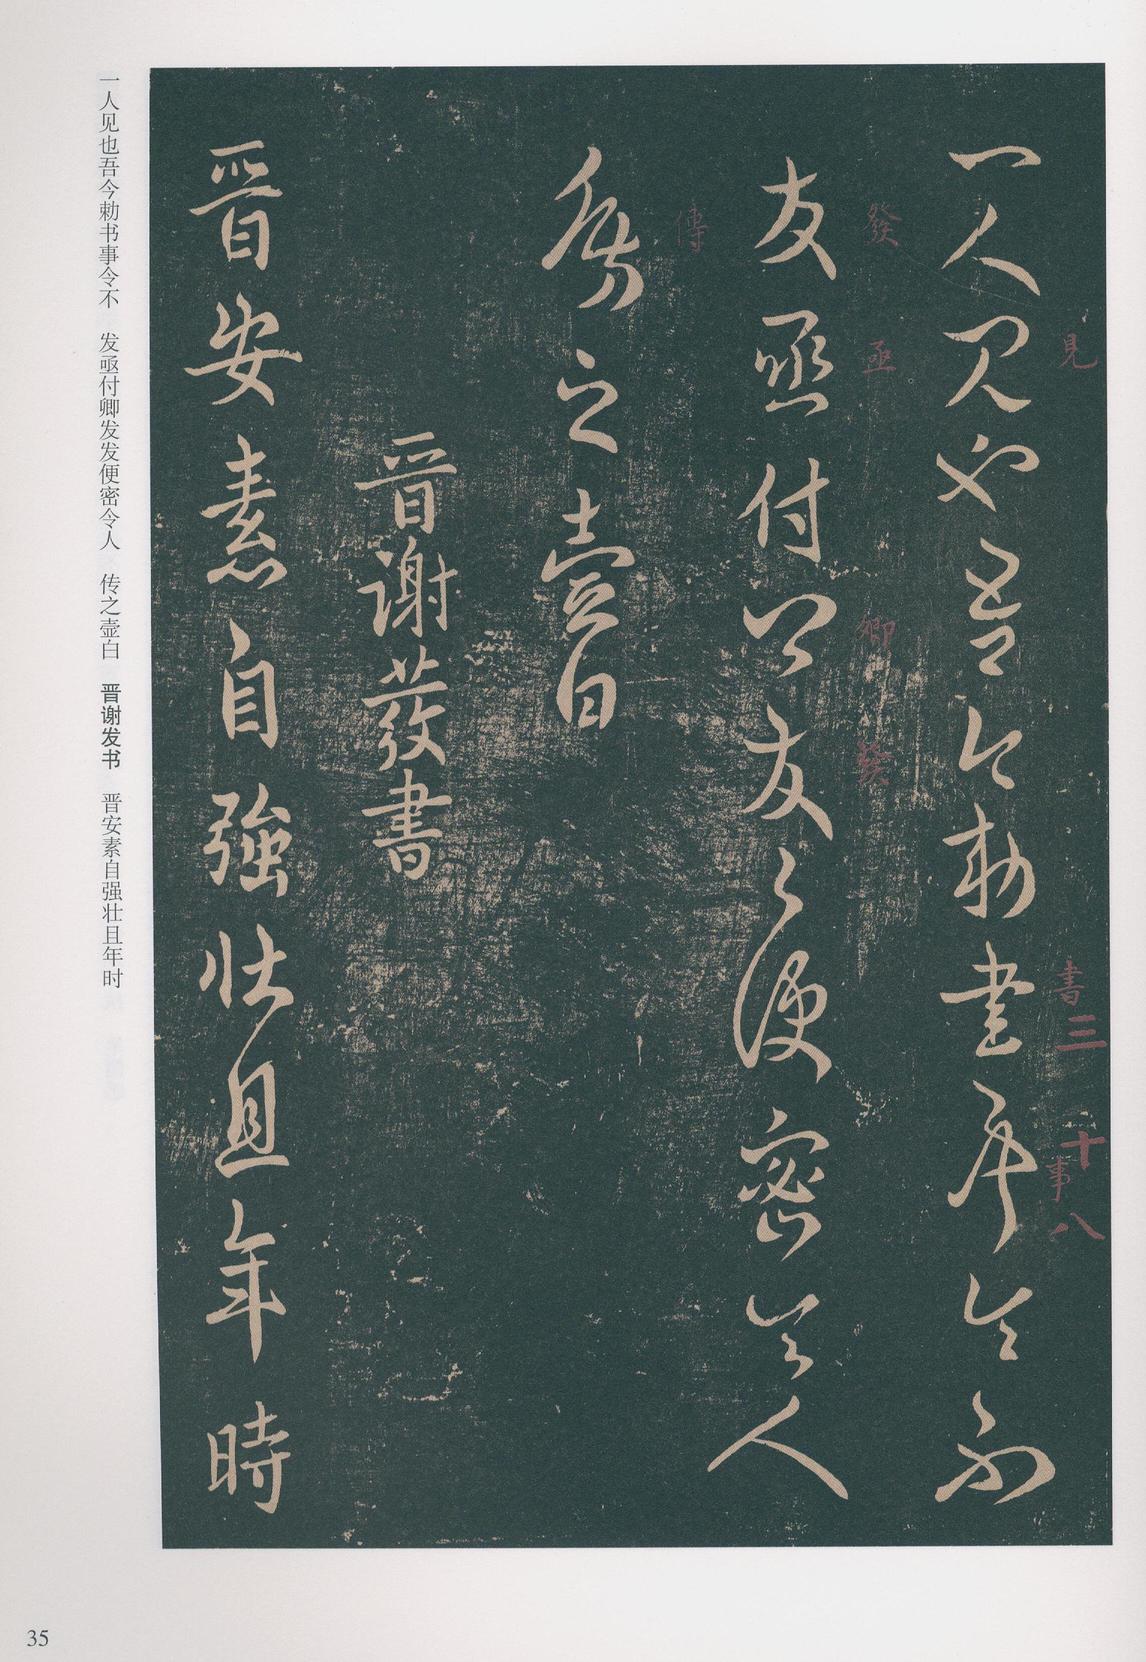 一人見也吾今勅書事令不
見
書
三
十
事
八
发亟付卿发々便密令人
發
亟
卿
發
傳之壺白
傳
晋謝發書
晋安素自強壯且年時
一人见也吾今勅书事令不 发亟付卿发发便密令人 传之壶白 晋谢发书 晋安素自强壮且年时
35